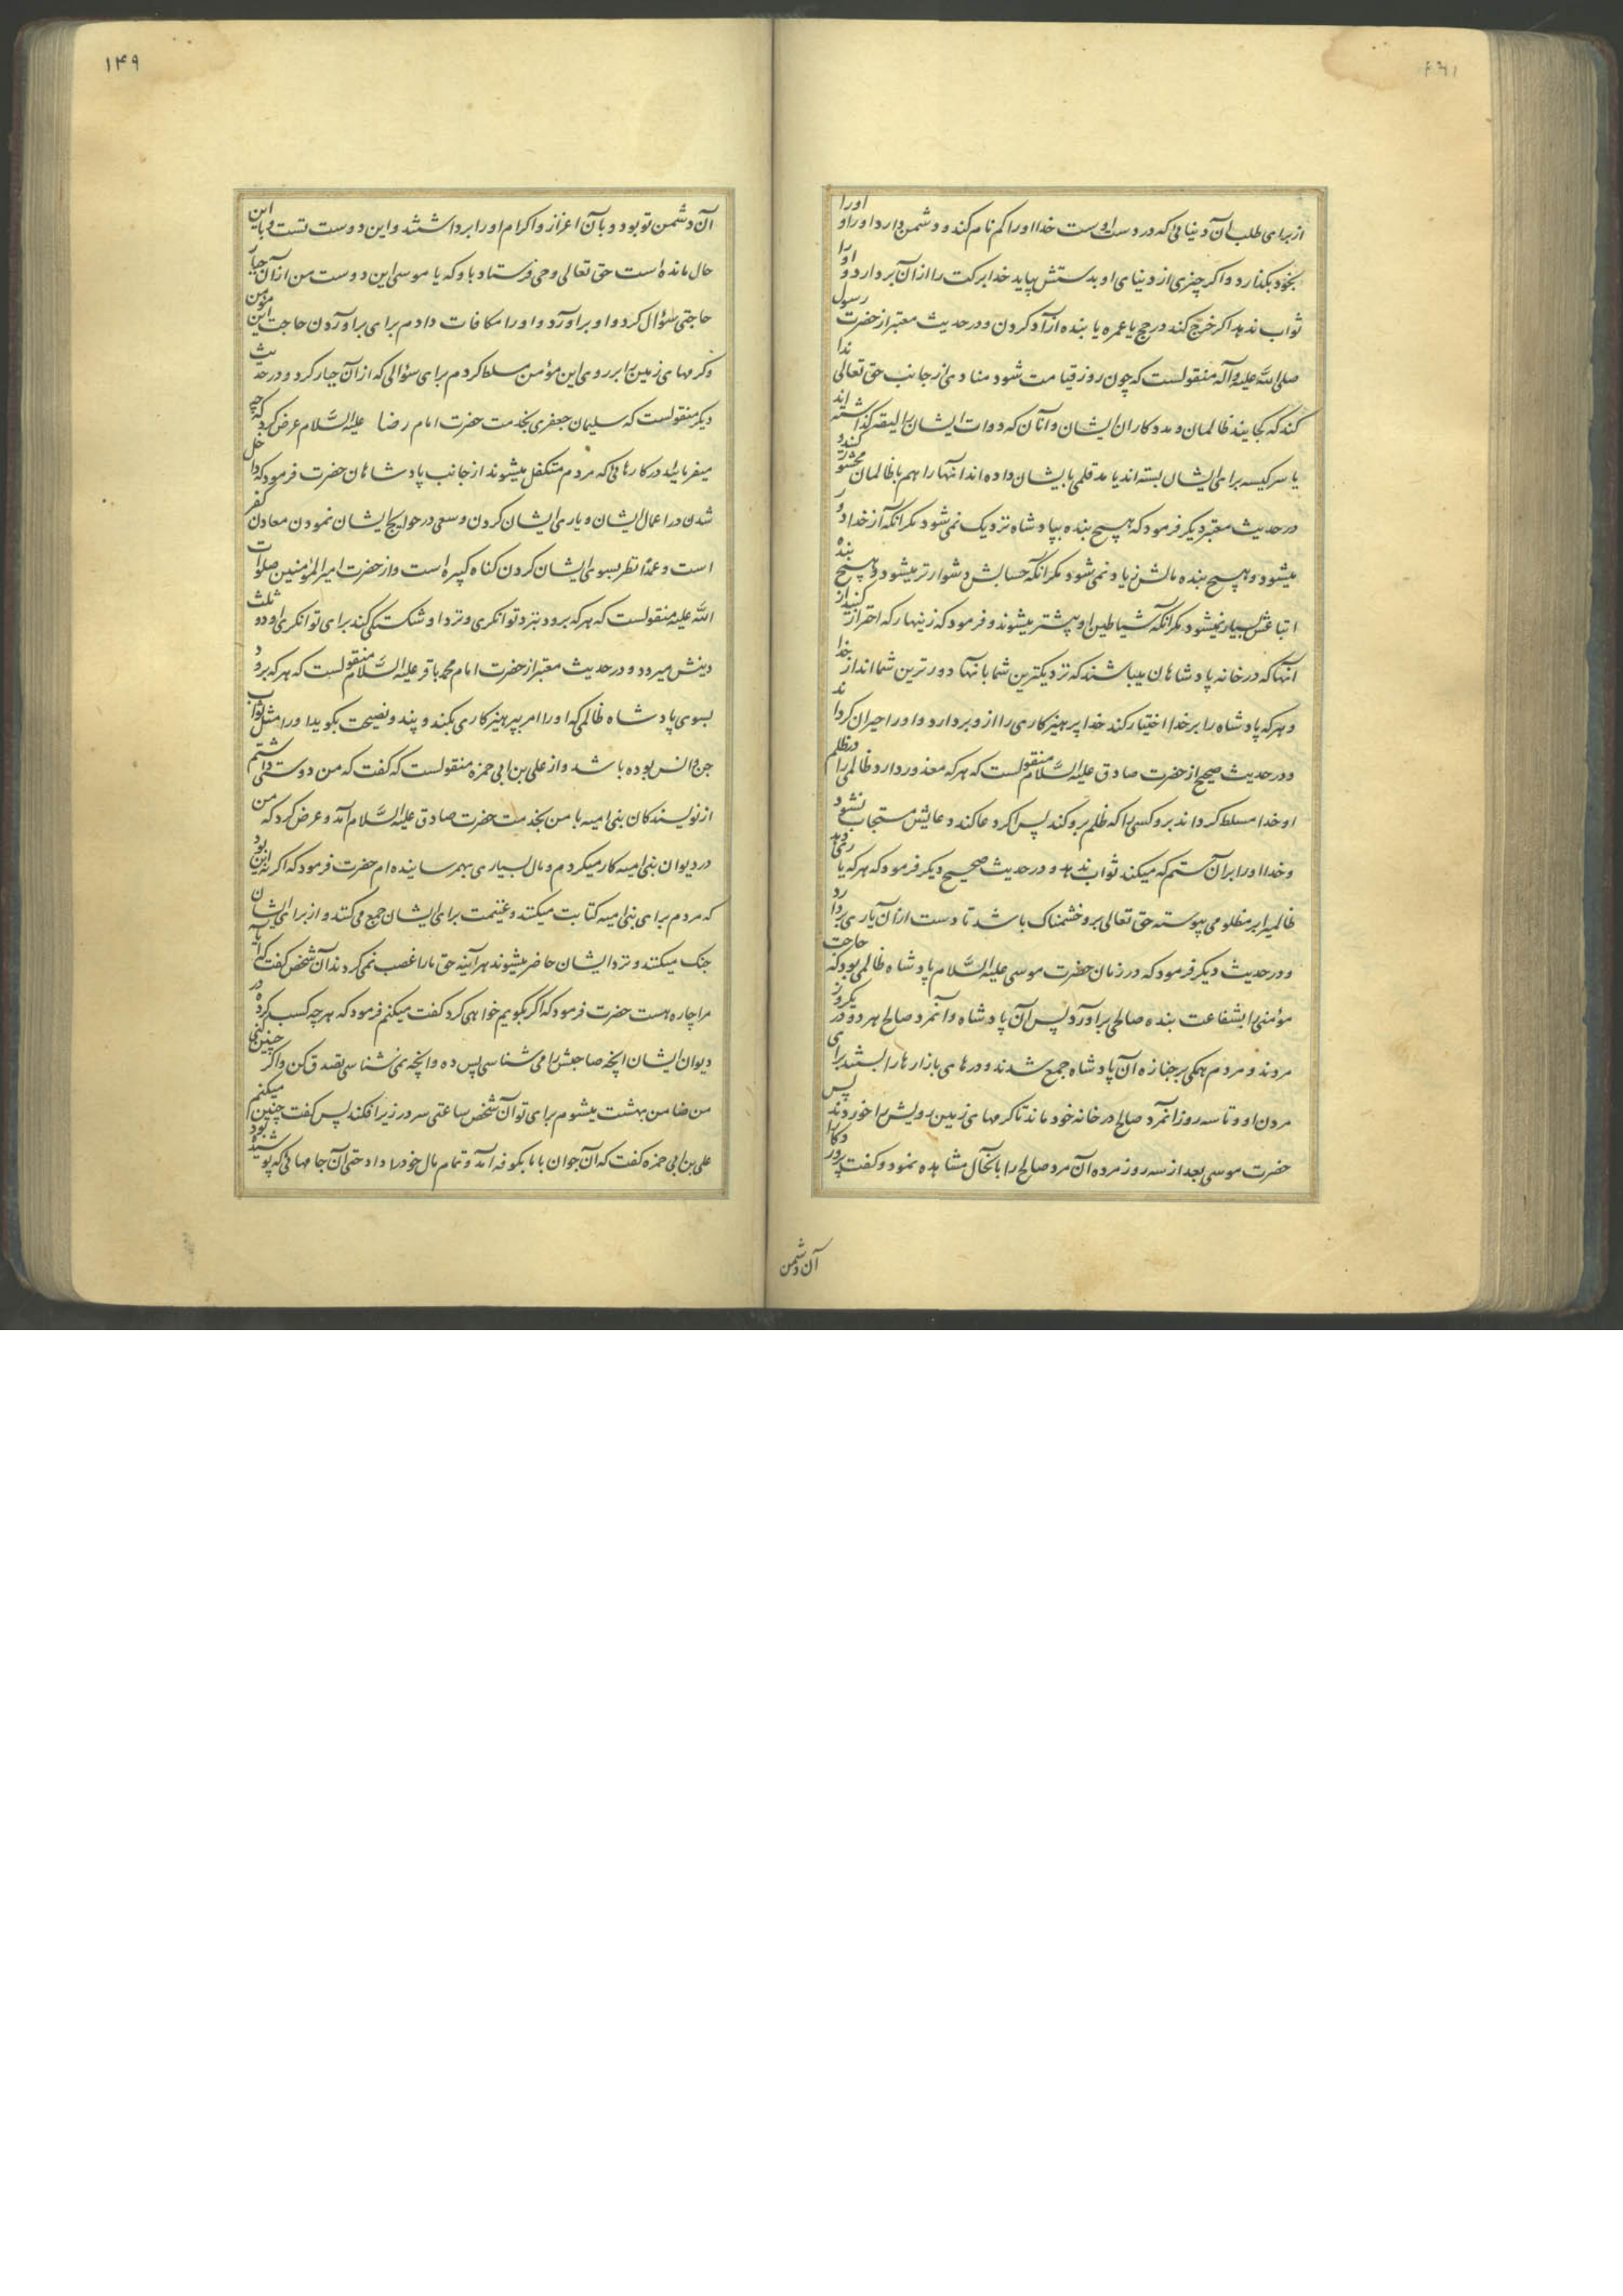 از برای طلب آن دنیائی که در دست اوست خدا او را کم نام کند و دشمن دارد او را و او را
بخود بگذارد و اگر چیزی از دنیای او بدستش بیاید خدا برکت را از آن بردارد و او را
ثواب ندهد اگر خرج کند در حج یا عمره یا بنده آزاد کردن و در حدیث معتبر از حضرت رسول
صلی الله علیه و آله منقولست که چون روز قیامت شود منادی از جانب حق تعالی ندا
کند که کجایند ظالمان و مددکاران ایشان و آنان که دوات ایشان را لیقه گذاشته اند
یا سر کیسه برای ایشان بسته اند یا مد قلمی بایشان داده اند آنها را هم با ظالمان محشور کنید
در حدیث معتبر دیگر فرمود که هیچ بنده بپادشاه نزدیک نمی شود مگر آنکه از خدا دور
میشود و هیچ بنده مالش زیاد نمی شود مگر آنکه حسابش دشوارتر میشود و هیچ بنده
اتباعش بسیار نمیشود مگر آنکه شیاطین او بیشتر میشوند و فرمود که زینهار که احتراز کنید از
آنها که در خانه پادشاهان میباشند که نزدیکترین شما بآنها دورترین شما اند از خدا
و هر که پادشاه را بر خدا اختیار کند خدا پرهیزکاری را از و بردارد و او را حیران گرداند
و در حدیث صحیح از حضرت صادق علیه السلام منقولست که هر که معذور دارد ظالمی را در ظلم
او خدا مسلط گرداند برو کسی را که ظلم برو کند پس اگر دعا کند دعایش مستجاب نشود
و خدا او را بر آن ستم که میکند ثواب ندهد و در حدیث صحیح دیگر فرمود که هر که یاری دهد
ظالمیرا بر مظلومی پیوسته حق تعالی برو خشمناک باشد تا دست از آن یاری بردارد
و در حدیث دیگر فرمود که در زمان حضرت موسی علیه السلام پادشاه ظالمی بود که حاجت
مؤمنی را بشفاعت بنده صالحی برآورد پس آن پادشاه و آنمرد صالح هر دو در یکروز
مردند و مردم همگی بر جنازه آن پادشاه جمع شدند و درهای بازارها را بستند برای
مردن او و تا سه روز آنمرد صالح در خانه خود ماند تا کرمهای زمین رویش را خوردند پس
حضرت موسی بعد از سه روز مرده آن مرد صالح را بآنحال مشاهده نمود و گفت پروردگارا
آن دشمن
۱۴۹
آن دشمن تو بود و بآن اعزاز و اکرام او را برداشتند و این دوست تست و باین
حال مانده است حق تعالی وحی فرستاد باو که یا موسی این دوست من از آن جبار
حاجتی سؤال کرد و او برآورد و او را مکافات دادم برای برآوردن حاجت این مؤمن
و کرمهای زمین را بر روی این مؤمن مسلط کردم برای سؤالی که از آن جبار کرد و در حدیث
دیگر منقولست که سلیمان جعفری بخدمت حضرت امام رضا علیه السلام عرض کرد که چه
میفرمائید در کارهائی که مردم متکفل میشوند از جانب پادشاهان حضرت فرمود که داخل
شدن در اعمال ایشان و یاری ایشان کردن و سعی در حوایج ایشان نمودن معادل کفر
است و عمدا نظر بسوی ایشان کردن گناه کبیره است و از حضرت امیر المؤمنین صلوات
الله علیه منقولست که هر که برود بنزد توانگری و نزد او شکستگی کند برای توانگری او دو ثلث
دینش میرود و در حدیث معتبر از حضرت امام محمد باقر علیه السلام منقولست که هر که برود
بسوی پادشاه ظالمی که او را امر بپرهیزکاری بکند و پند و نصیحت بگوید او را مثل ثواب
جن و انس بوده باشد و از علی بن ابی حمزه منقولست که گفت که من دوستی داشتم
از نویسندگان بنی امیه با من بخدمت حضرت صادق علیه السلام آمد و عرض کرد که من
در دیوان بنی امیه کار میکردم و مال بسیاری بهم رسانیده ام حضرت فرمود که اگر نه این بود
که مردم برای بنی امیه کتابت میکنند و غنیمت برای ایشان جمع می کنند و از برای ایشان
جنگ میکنند و نزد ایشان حاضر میشوند هر آینه حق ما را غصب نمی کردند آن شخص گفت که آیا
مرا چاره هست حضرت فرمود که اگر بگویم خواهی کرد گفت میکنم فرمود که هر چه کسب کرده در
دیوان ایشان آنچه صاحبش را می شناسی پس ده و آنچه نمی شناسی تصدق کن و اگر چنین کنی
من ضامن بهشت میشوم برای تو آن شخص ساعتی سر در زیر افکند پس گفت چنین میکنم
علی بن ابی حمزه گفت که آن جوان با ما بکوفه آمد و تمام مال خود را داد حتی آن جامهائی که پوشیده بود